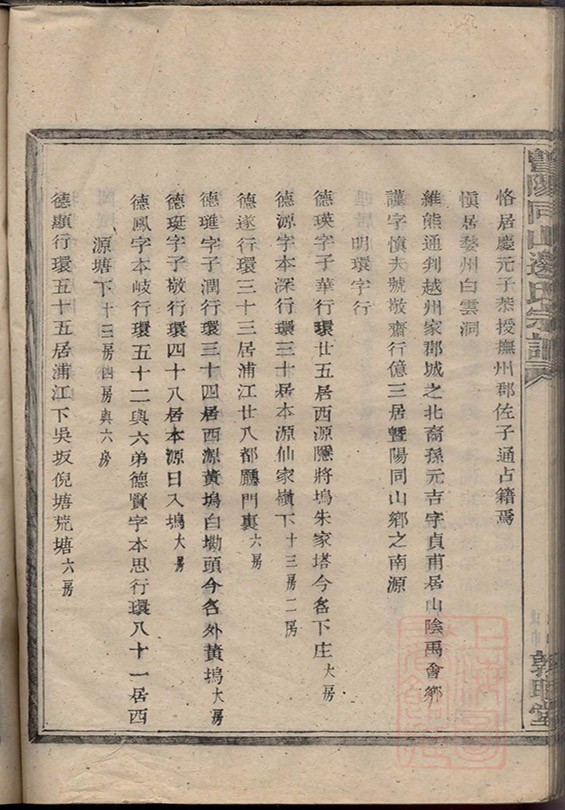 暨陽同山邊氏宗譜
恪居慶元子恭授撫州郡佐子通占籍焉
愼居婺州白雲洞
維熊通判越州家郡城之北裔孫元吉字貞甫居山陰禹會鄉
謹字愼夫號敬齋行億三居暨陽同山鄉之南源
明環字行
德瑛字子華行環廿五居西源隱將塢朱家塔今各下庄大房
德源字本深行環三十居本源仙家嶺下十三房二房
德遂行環三十三居浦江廿八都廳門裏六房
德琟字子潤行環三十四居西源黃塢白坳頭今各外黃塢大房
德珽字子敬行環四十八居本源日入塢大房
德鳳字本岐行環五十二與六弟德賢字本思行環八十一居西
源塘下十三房四房與六房
德顯行環五十五居浦江下吳坂倪塘荒塘六房